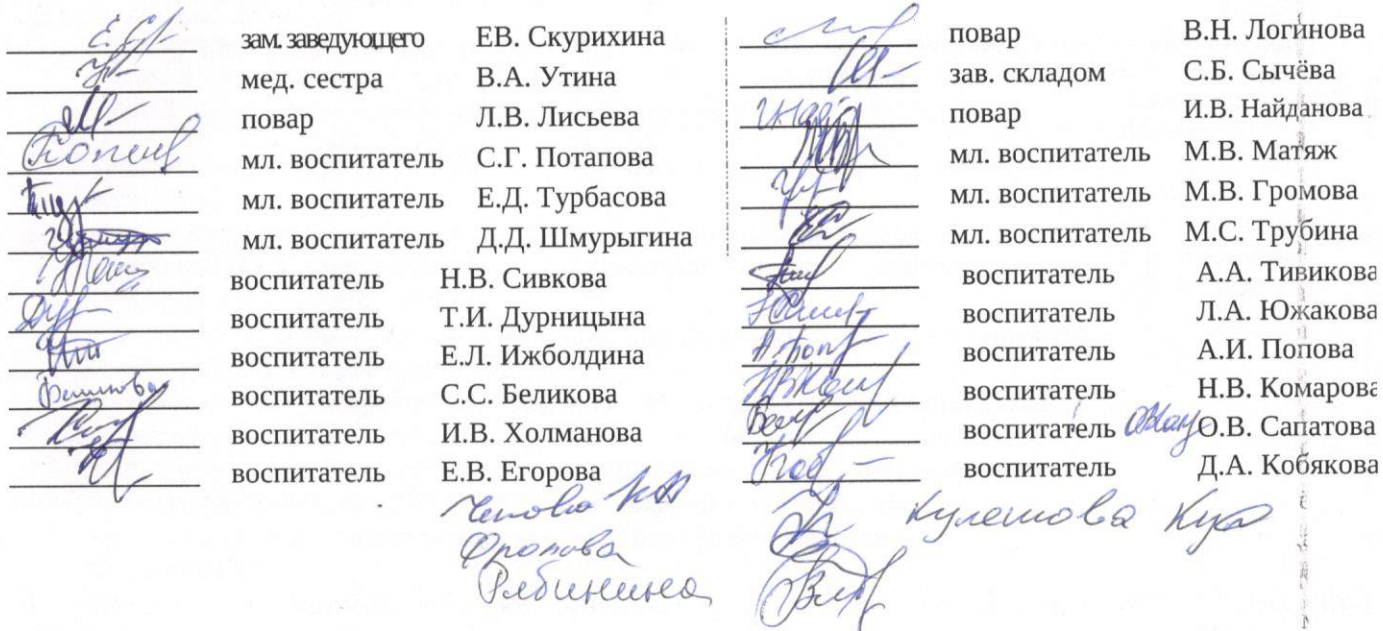 зам. заведующего ЕВ. Скурихина
мед. сестра В.А. Утина
повар Л.В. Лисьева
мл. воспитатель С.Г. Потапова
мл. воспитатель Е.Д. Турбасова
мл. воспитатель Д.Д. Шмурыгина
воспитатель Н.В. Сивкова
воспитатель Т.И. Дурницына
воспитатель Е.Л. Ижболдина
воспитатель С.С. Беликова
воспитатель И.В. Холманова
воспитатель Е.В. Егорова
Рябинина
повар В.Н. Логинова
зав. складом С.Б. Сычёва
повар И.В. Найданова
мл. воспитатель М.В. Матяж
мл. воспитатель М.В. Громова
мл. воспитатель М.С. Трубина
воспитатель А.А. Тивикова
воспитатель Л.А. Южакова
А.Поп воспитатель А.И. Попова
воспитатель Н.В. Комарова
воспитатель О.В. Сапатова
воспитатель Д.А. Кобякова
Кулешова